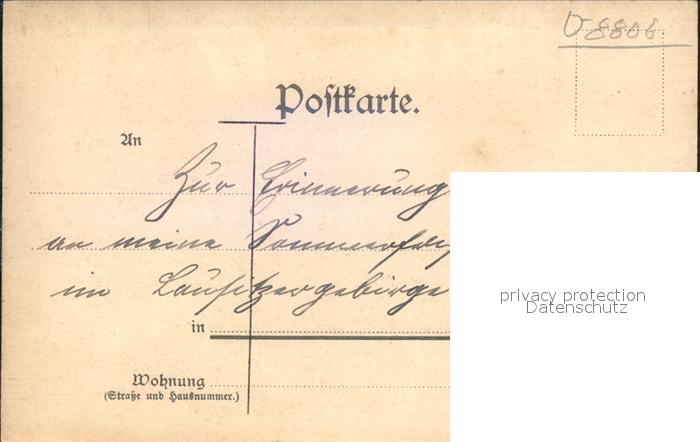 D-8806
Postkarte.
An
Zur Erinnerung
an meine
im Lausitzergebirge
in
privacy protection
Datenschutz
Wohnung
(Straße und Hausnummer.)